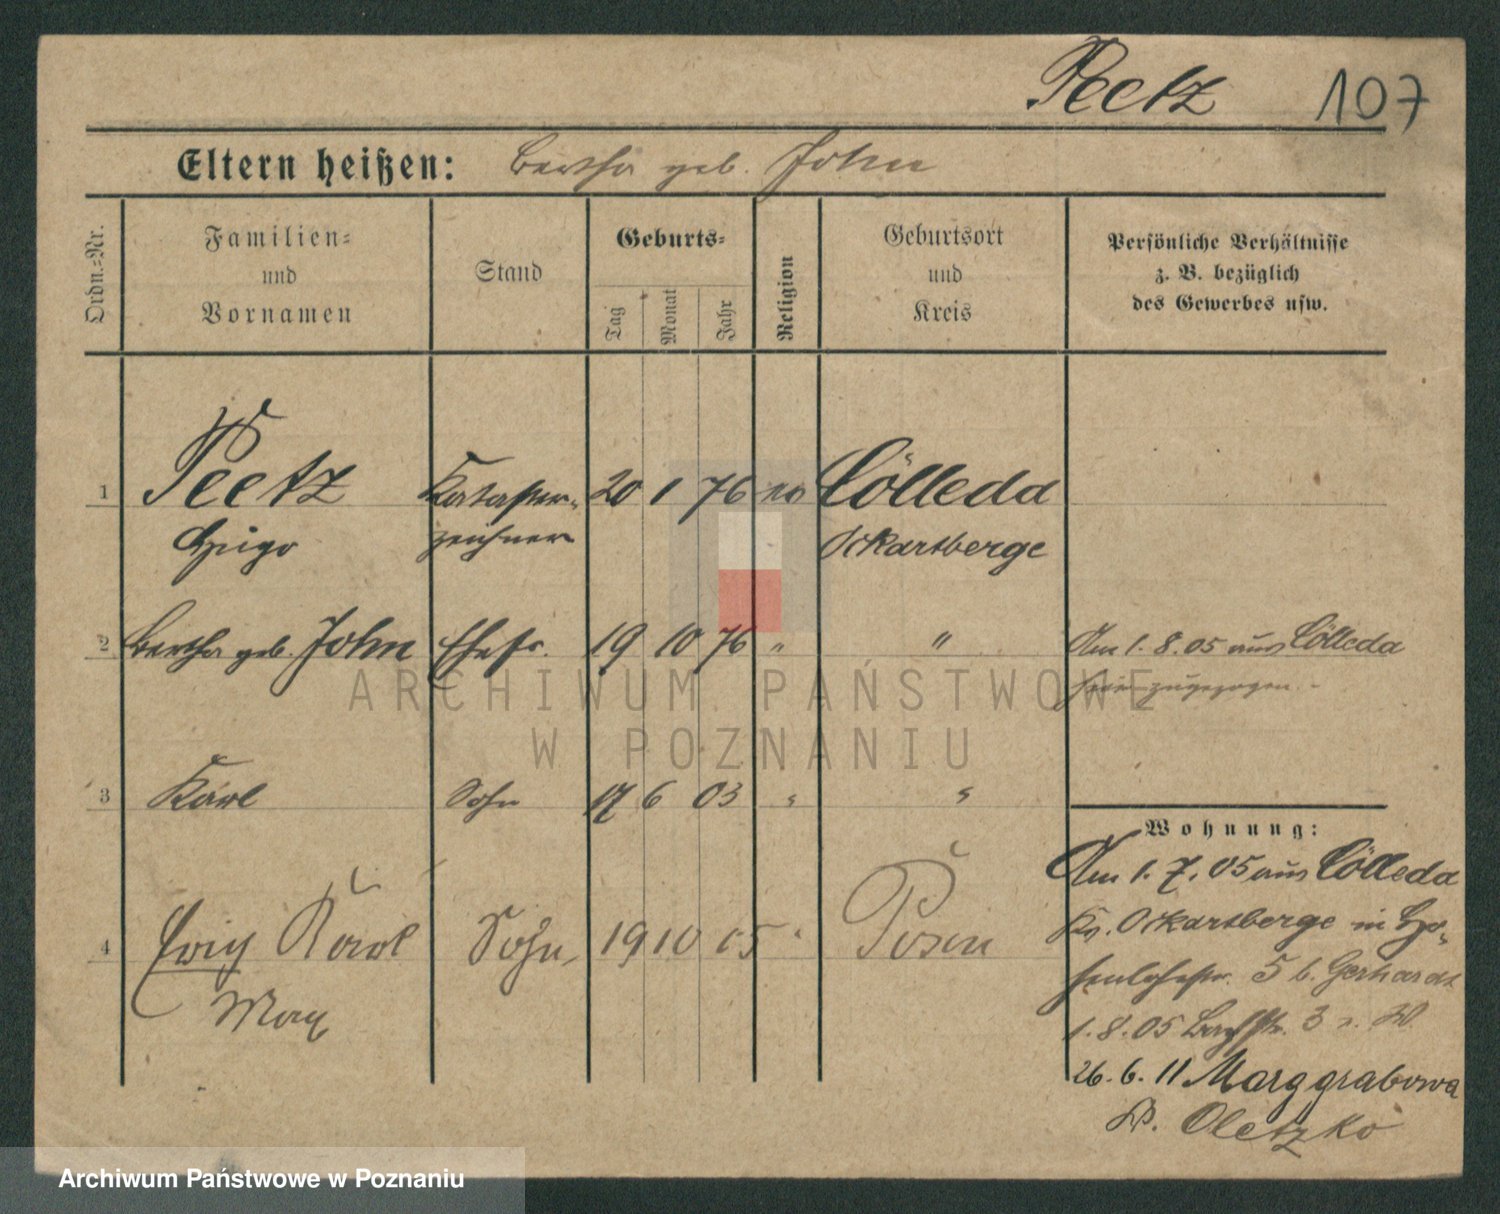 Peetz 107
Eltern heißen: Bertha geb. John
Ordn.-Nr.
Familien-
und
Vornamen
Stand
Geburts-
Tag
Monat
Jahr
Religion
Geburtsort
und
Kreis
Persönliche Verhältnisse
z. B. bezüglich
des Gewerbes usw.
1 Peetz Kataster- 20 1 76 ev Cölleda
Hugo zeichner Eckartsberge
2 Bertha geb. John Ehefr. 19 10 76 " " Am 1. 8. 05 aus Cölleda
hier zugezogen.
3 Karl Sohn 17 6 03 " "
4 Erich Karl Sohn 19 10 05 " Posen
Max
Wohnung:
Am 1. 7. 05 aus Cölleda
Kr. Eckartsberge in Ho-
henlohestr. 5 b. Gerhardt
1. 8. 05 Bachstr. 3 r. W.
26. 6. 11 Marggrabowa
Kr. Oletzko
ARCHIWUM PAŃSTWOWE
W POZNANIU
Archiwum Państwowe w Poznaniu